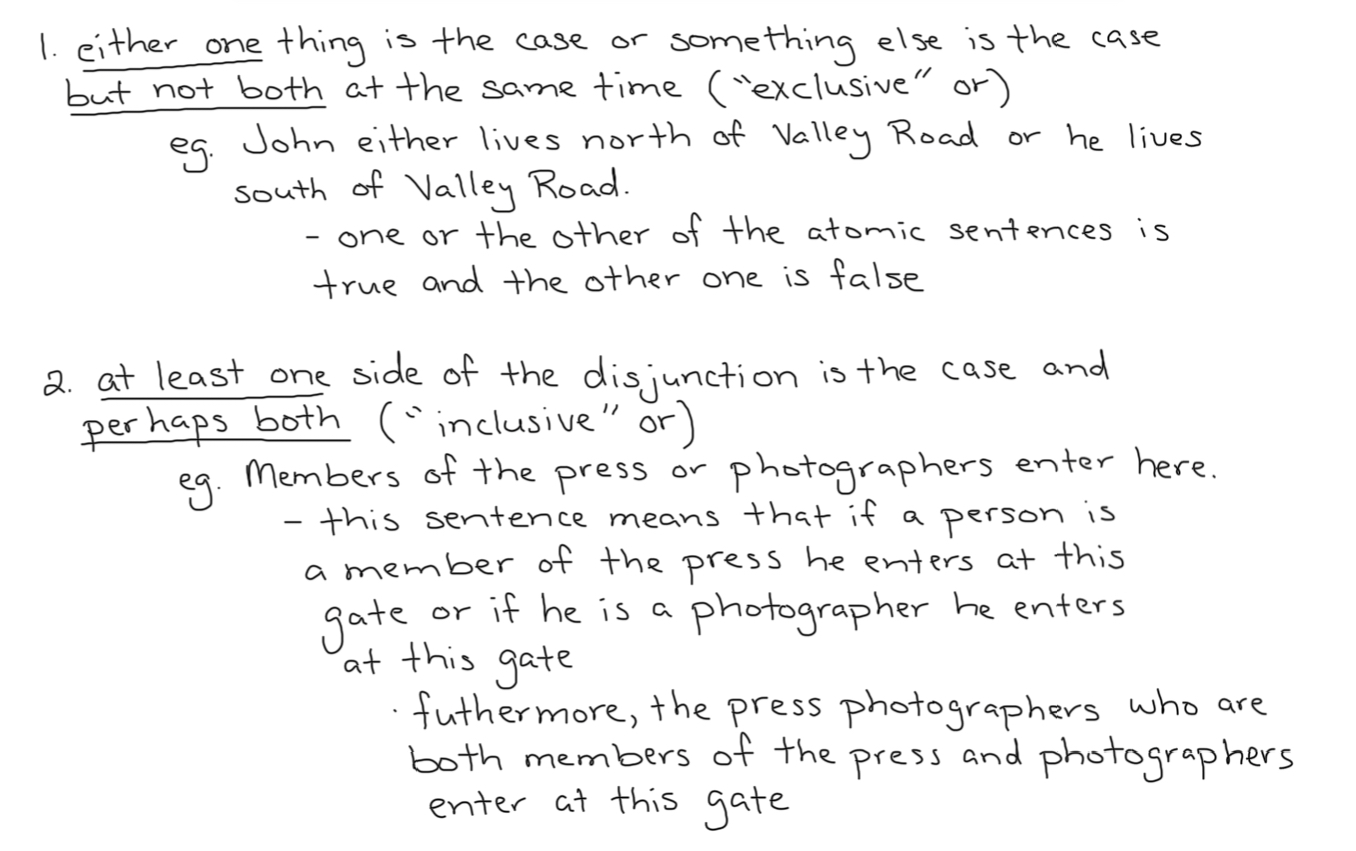 1. either one thing is the case or something else is the case
but not both at the same time ("exclusive" or)
eg. John either lives north of Valley Road or he lives
south of Valley Road.
- one or the other of the atomic sentences is
true and the other one is false
2. at least one side of the disjunction is the case and
perhaps both ("inclusive" or)
eg. Members of the press or photographers enter here.
- this sentence means that if a person is
a member of the press he enters at this
gate or if he is a photographer he enters
at this gate
· futhermore, the press photographers who are
both members of the press and photographers
enter at this gate